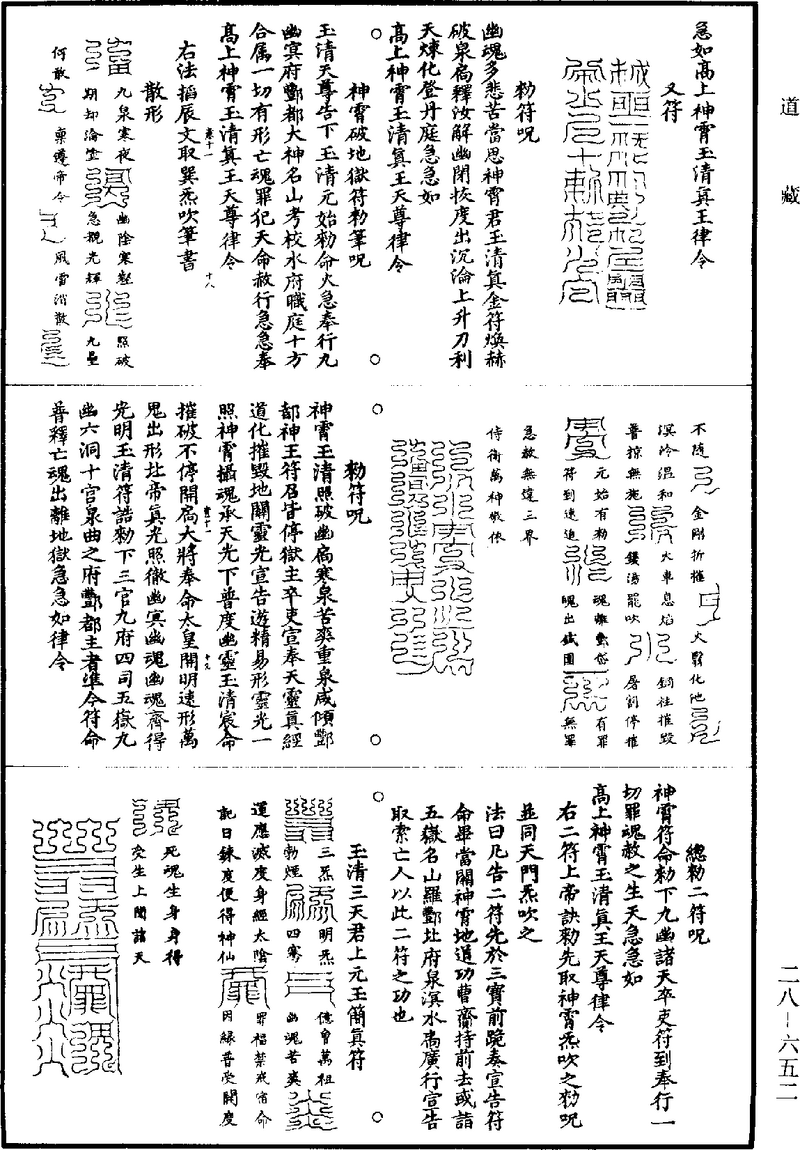 道藏
急如高上神霄玉清真王律令
又符
勑符呪
幽魂多悲苦當思神霄君玉清真金符煥赫
破泉扃釋汝解幽閉恢度出沉淪上升刀利
天煉化登丹庭急急如
高上神霄玉清真王天尊律令
神霄破地獄符勑筆呪
玉清天尊告下玉清元始勑命火急奉行九
幽冥府酆都大神名山考校水府職庭十方
合属一切有形亡魂罪犯天命赦行急急奉
高上神霄玉清真王天尊律令
右法掐辰文取巽炁吹筆書
散形
九泉寒夜
幽陰寒壑
照破
期却淪塗
急覩光輝
九壘
何敢
稟遵帝令
風雷消散
不随
金剛折摧
火翳化池
溟泠温和
火車息焰
銅柱摧毁
普掠無施
鑊湯罷吹
屠割停摧
元始有勑
魂離繫岱
有罪
符到速追
魄出鐵圍
無罪
急赦無違三界
侍衛萬神敬依
勑符呪
神霄玉清照破幽扃寒泉苦爽重泉咸傾酆
都神王符召皆停獄主卒吏宣奉天靈真經
道化摧毁地關靈光宣告遊精易形靈光一
照神霄攝魂承天光下普度幽靈玉清宸命
摧破不停開扃大將奉命太皇開明速形萬
鬼出形北帝真光照徹幽冥幽魂幽魂齊得
光明玉清符誥勑下三官九府四司五嶽九
幽六洞十宫泉曲之府酆都主者準今符命
普釋亡魂出離地獄急急如律令
總勑二符呪
神霄符命勑下九幽諸天卒吏符到奉行一
切罪魂赦之生天急急如
高上神霄玉清真王天尊律令
右二符上帝訣勑先取神霄炁吹之勑呪
並同天門炁吹之
法曰凡告二符先於三寳前跪奏宣告符
命畢當關神霄地道功曹齎持前去或詣
五嶽名山羅酆北府泉溟水禹廣行宣告
取索亡人以此二符之功也
玉清三天君上元玉簡真符
三炁
明炁
億曾萬祖
勃煙
四騫
幽魂苦爽
運應滅度身經太陰
罪福禁戒宿命
記日鍊度便得神仙
因緣普受開度
死魂生身身得
受生上聞諸天
二八-六五二